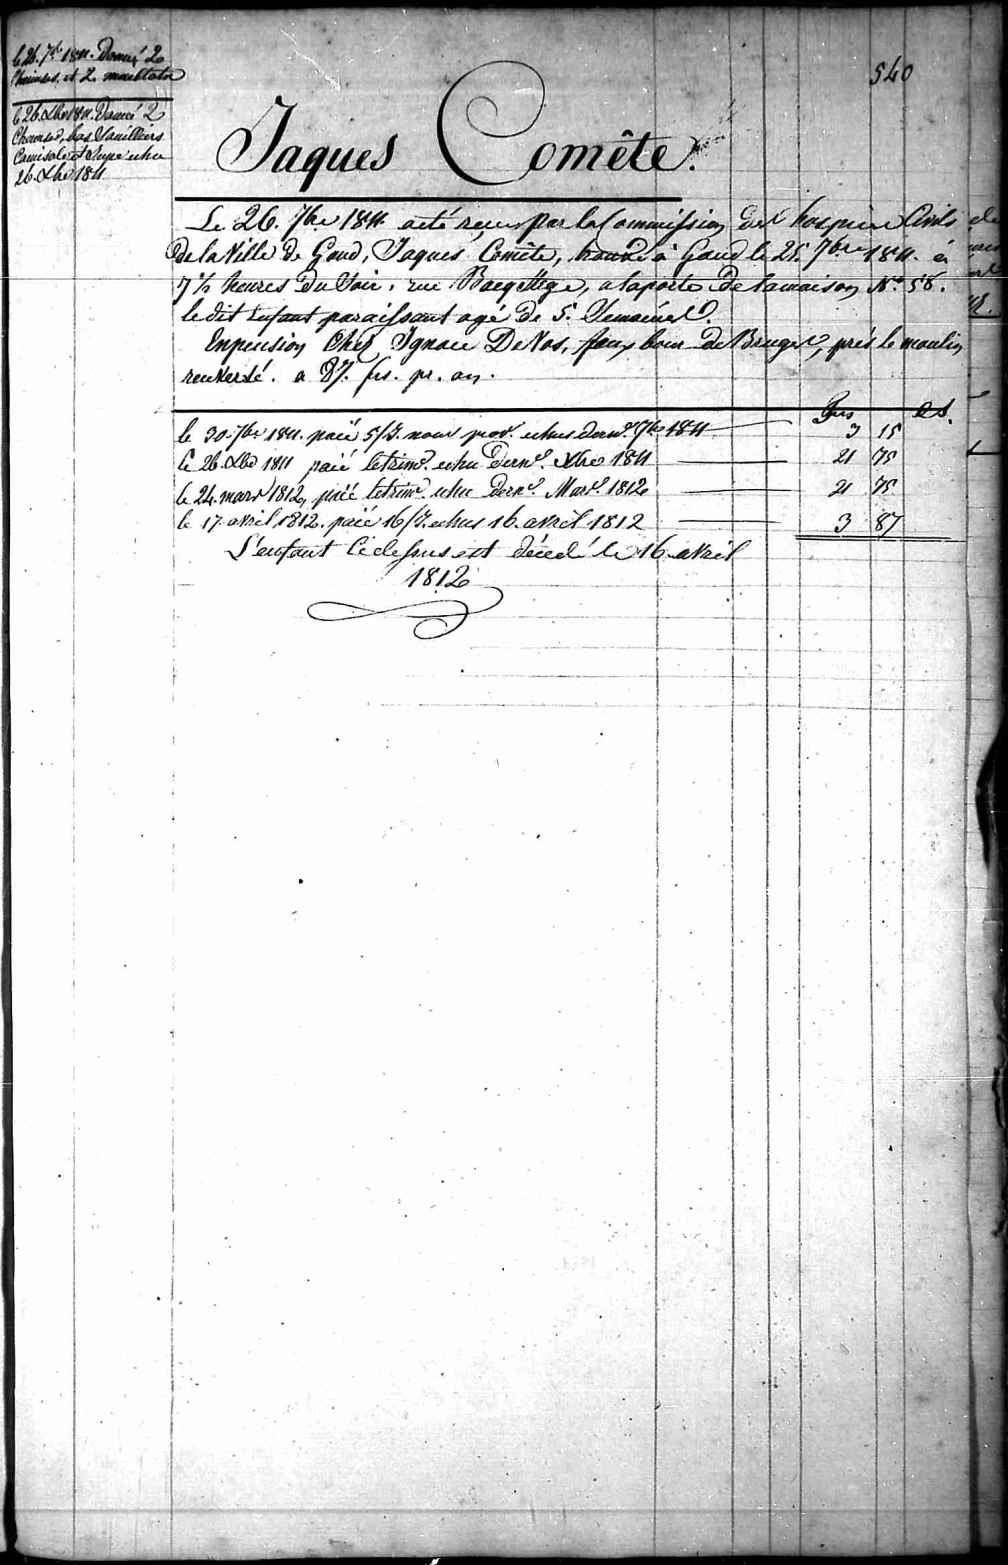 540
le 26. 7bre 1811. Donné 2
Chemises et 2 mouchoirs
le 26 Xbre 1811. Donné 2
Chemises, bas
Camisole et Jupe echu
26. Xbre 1811
Jaques Comête.
Le 26. 7bre 1811 a été reçu par la Commission des hospices Civils
de la Ville de Gand, Jaques Comête, trouvé à Gand le 25. 7bre 1811. à
7½ heures du Soir, rue Bacqettege, a la porte de la maison No. 58.
le dit Enfant paraissant agé de 5. Semaines.
En pension Chez Ignace De Vos, faux bour de Bruges, près le moulin
renversé. a 87. frs. pr. an.
frs cs.
le 30. 7bre 1811. paié 5/J. nour prov. echus dernr. 7bre 1811 3 15
le 26. Xbre 1811 paié le trimr. echu dernr. Xbre 1811 21 75
le 24. mars 1812, paié le trimr. echu dernr. Mars. 1812 21 75
le 17. avril 1812. paié 16/J. echus 16 avril 1812 3 87
L'enfant ci dessus est déced le 16 avril
1812